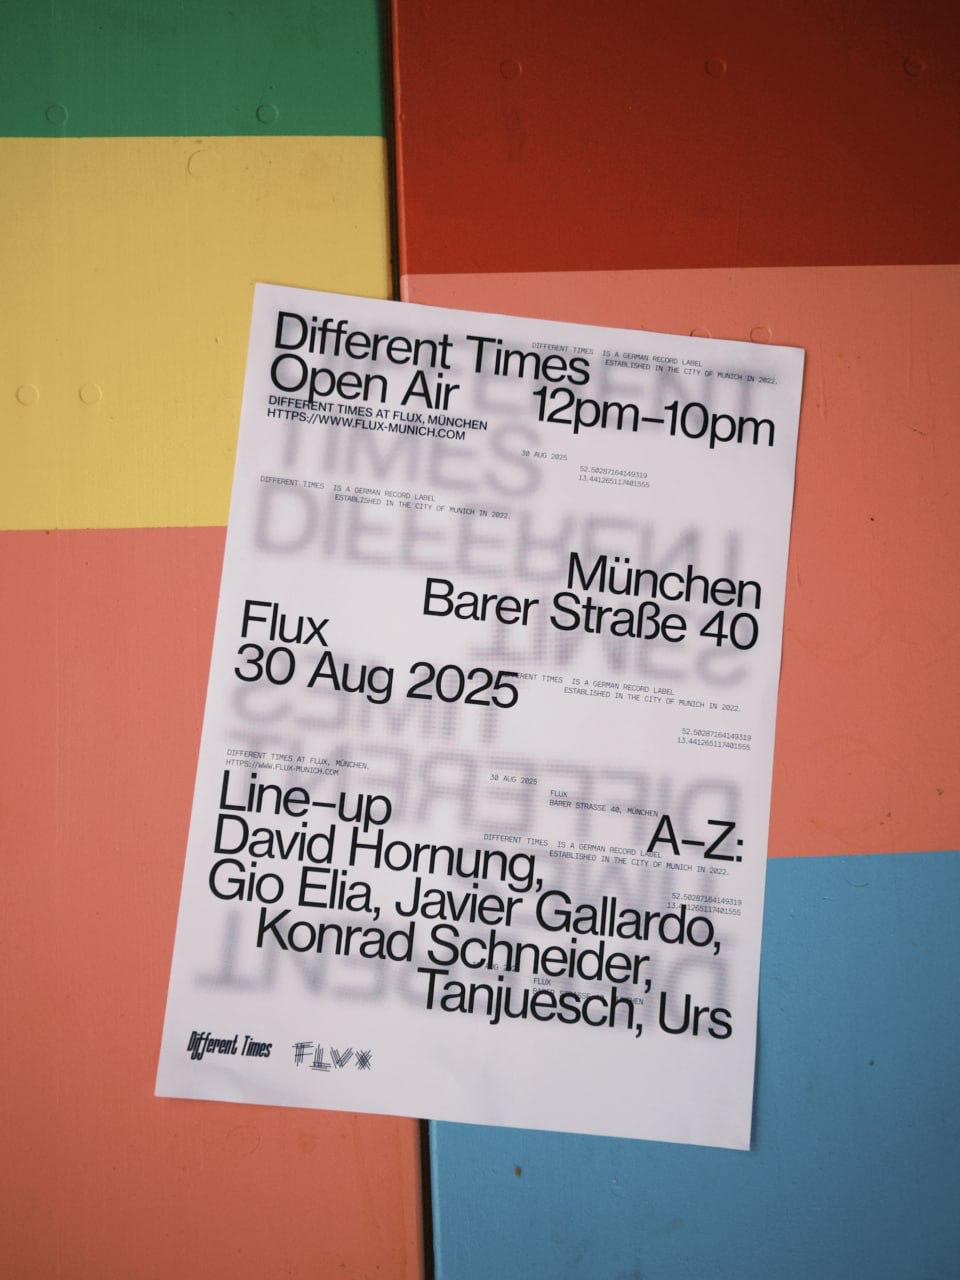 Different Times
DIFFERENT TIMES IS A GERMAN RECORD LABEL
ESTABLISHED IN THE CITY OF MUNICH IN 2022.
Open Air
12pm–10pm
DIFFERENT TIMES AT FLUX, MÜNCHEN
HTTPS://WWW.FLUX-MUNICH.COM
30 AUG 2025
52.50287164149319
13.441265117401555
TIMES
DIFFERENT TIMES IS A GERMAN RECORD LABEL
ESTABLISHED IN THE CITY OF MUNICH IN 2022.
DIFFERENT
München
Barer Straße 40
TIMES
Flux
30 Aug 2025
TIMES IS A GERMAN RECORD LABEL
ESTABLISHED IN THE CITY OF MUNICH IN 2022.
TIMES
52.50287164149319
13.441265117401555
DIFFERENT TIMES AT FLUX, MÜNCHEN.
HTTPS://WWW.FLUX-MUNICH.COM
30 AUG 2025
DIFFERENT
FLUX
BARER STRASSE 40, MÜNCHEN
Line–up
A–Z:
DIFFERENT TIMES IS A GERMAN RECORD LABEL
ESTABLISHED IN THE CITY OF MUNICH IN 2022.
David Hornung,
52.50287164149319
13.441265117401555
Gio Elia, Javier Gallardo,
Konrad Schneider,
FLUX
Tanjuesch, Urs
Different Times
FLUX